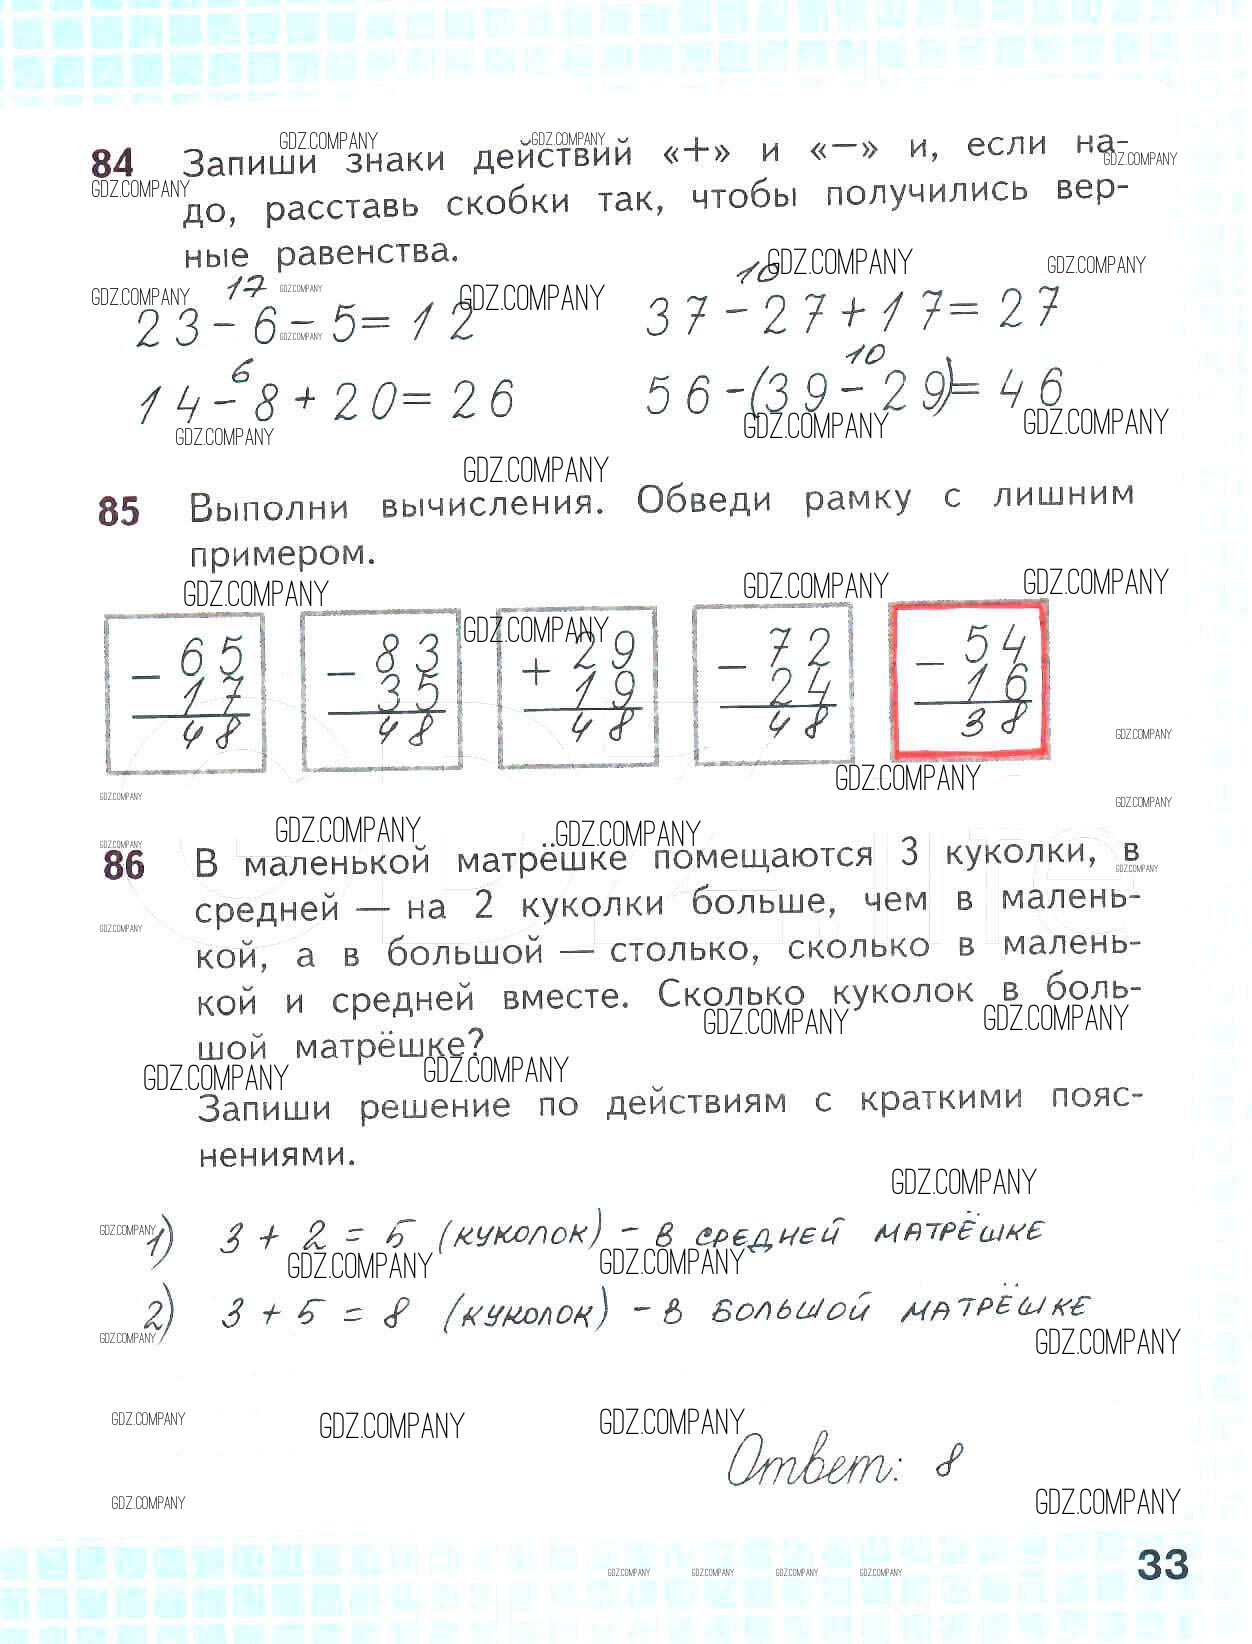 84 Запиши знаки действий «+» и «−» и, если на-
до, расставь скобки так, чтобы получились вер-
ные равенства.
17
23 − 6 − 5 = 12
10
37 − 27 + 17 = 27
6
14 − 8 + 20 = 26
10
56 − (39 − 29) = 46
85 Выполни вычисления. Обведи рамку с лишним
примером.
− 65 − 83 + 29 − 72 − 54
17 35 19 24 16
48 48 48 48 38
86 В маленькой матрёшке помещаются 3 куколки, в
средней — на 2 куколки больше, чем в малень-
кой, а в большой — столько, сколько в малень-
кой и средней вместе. Сколько куколок в боль-
шой матрёшке?
Запиши решение по действиям с краткими пояс-
нениями.
1) 3 + 2 = 5 (куколок) − в средней матрёшке
2) 3 + 5 = 8 (куколок) − в большой матрёшке
Ответ: 8
33
GDZ.COMPANY